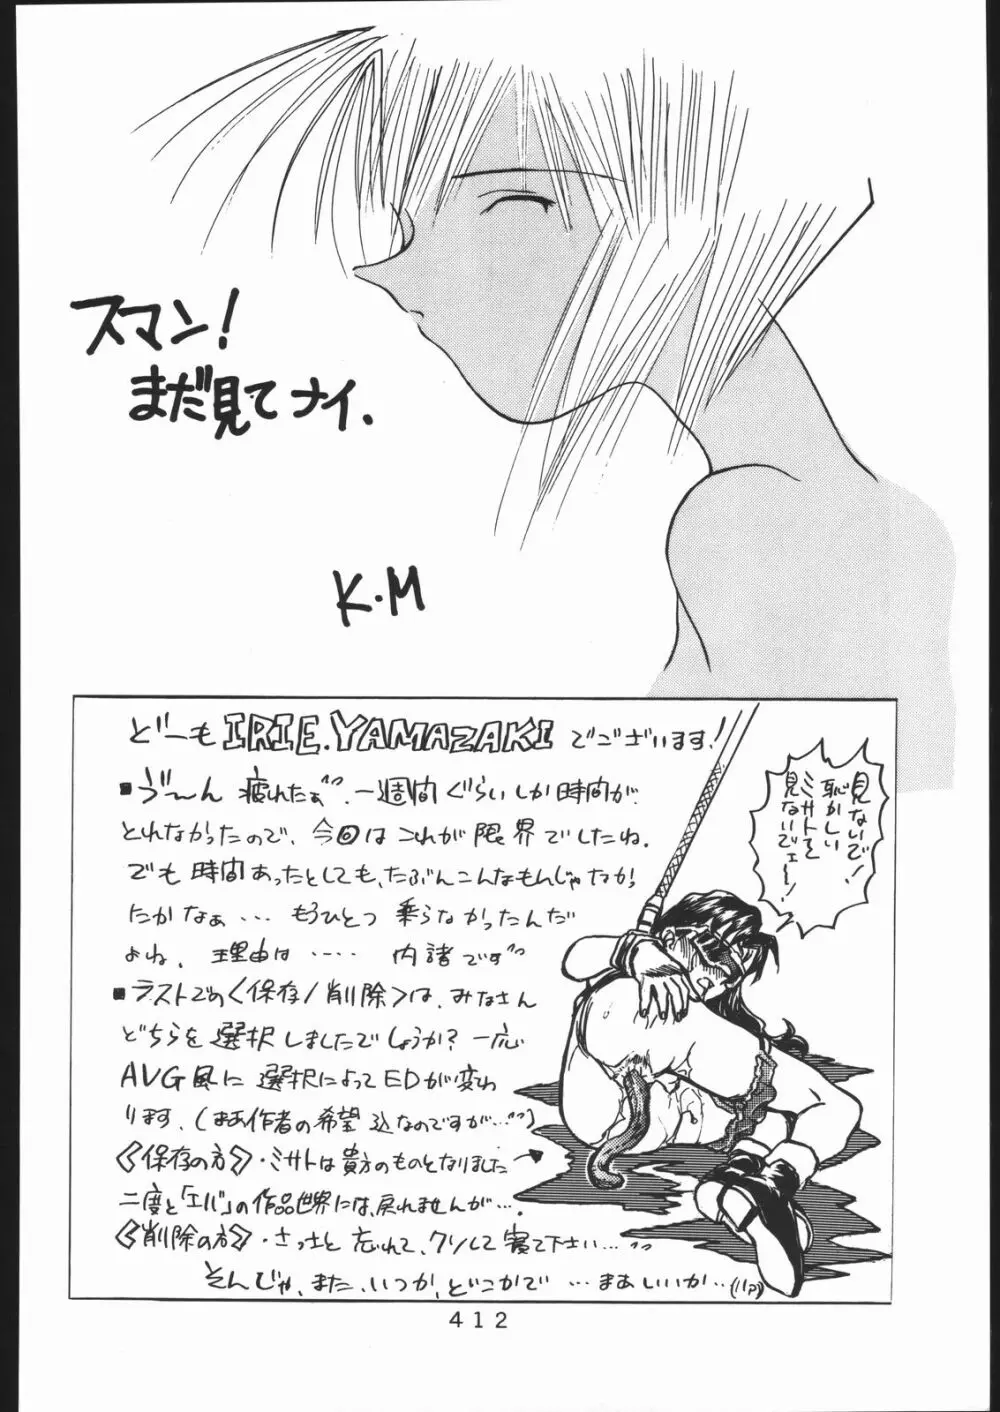 スマン!
まだ見てナイ.
K.M
どーも IRIE.YAMAZAKI でございます!
■う〜ん 疲れたぁ゛. 一週間ぐらいしか時間が
とれなかったので、今回はこれが限界でしたね.
でも時間あったとしても、たぶんこんなもんじゃなかっ
たかなぁ... もうひとつ 乗らなかったんだ
よね. 理由は..... 内諸です゛
■ラストでの〈保存/削除〉は、みなさん
どちらを選択しましたでしょうか? 一応
AVG風に 選択によってEDが変わ
ります. (まあ作者の希望込なのですが...゛)
《保存の方》・ミサトは貴方のものとなりました→
二度と「エバ」の作品世界には、戻れませんが....
《削除の方》・さっさと 忘れて、クソして寝て下さい...
そんじゃ、また、いつか、どこかで ...まあいいか..
見ないで!
恥かしい
ミサトを
見ないでェー!
412